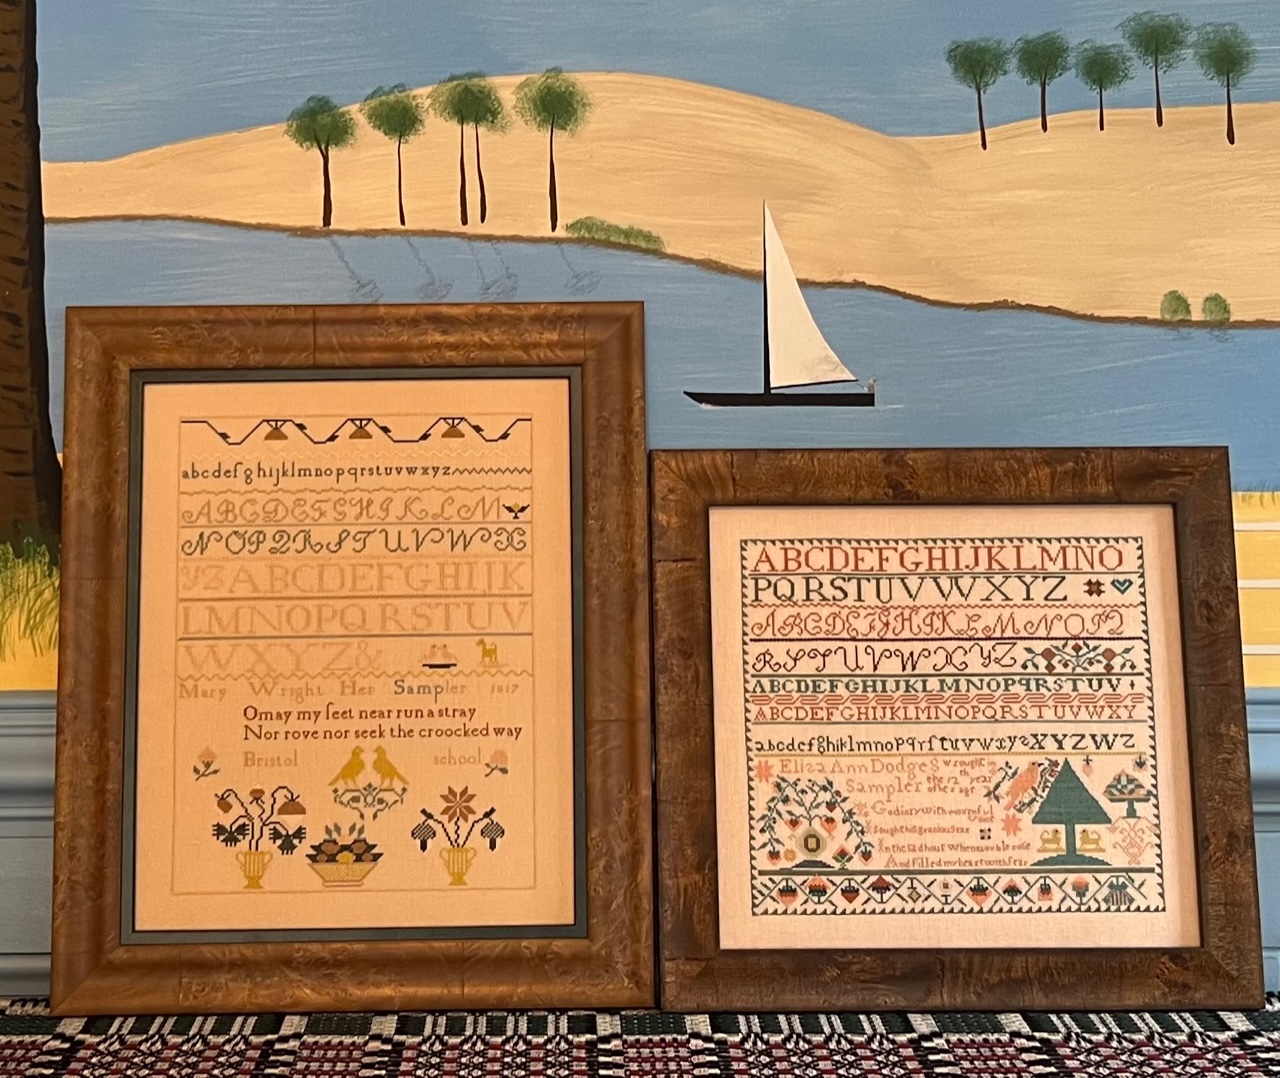 abcdefghijklmnopqrstuvwxyz
ABCDEFGHIJKLM
NOPQRSTUVWX
YZABCDEFGHIJK
LMNOPQRSTUV
WXYZ&
Mary Wright Her Sampler 1817
O may my feet near run a stray
Nor rove nor seek the croocked way
Bristol school
ABCDEFGHIJKLMNO
PQRSTUVWXYZ
ABCDEFGHIKLMNOPQ
RSTUVWXYZ
ABCDEFGHIJKLMNOPQRSTUV
ABCDEFGHIJKLMNOPQRSTUVWXY
abcdefghiklmnopqrſtuvwxyzXYZWZ
Eliza Ann Dodges wrought in
Sampler the 12th year
of her age
God with mournful
Sought his gracious ear
In the sad hour when trouble rose
And filled my heart with fear